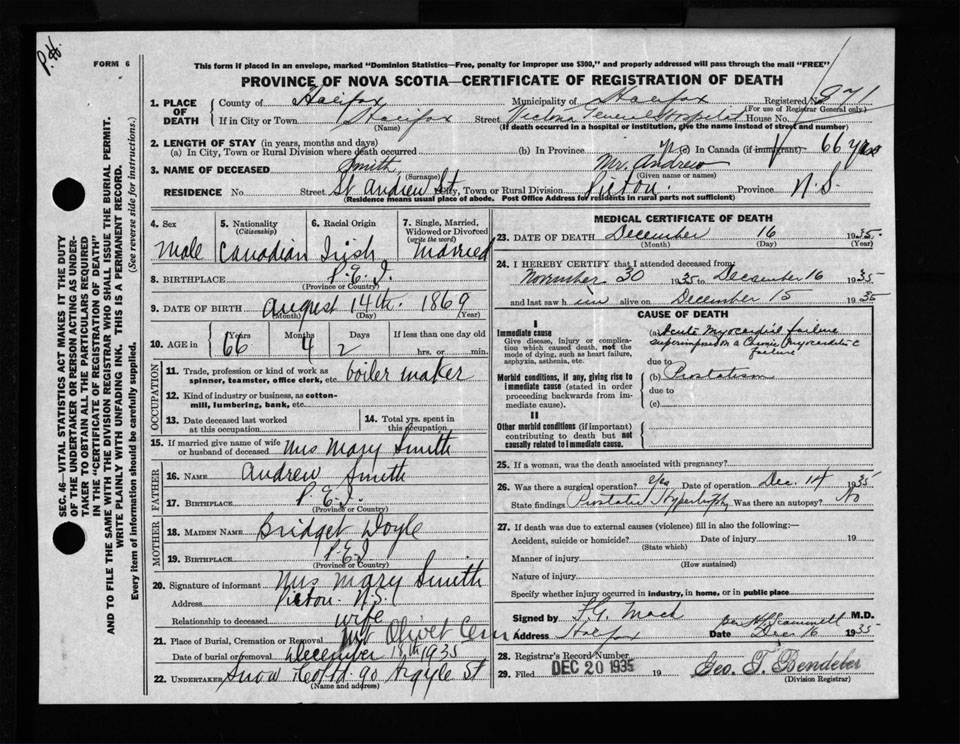 P.H.
FORM 6
This form if placed in an envelope, marked "Dominion Statistics—Free, penalty for improper use $300," and properly addressed will pass through the mail "FREE"
PROVINCE OF NOVA SCOTIA—CERTIFICATE OF REGISTRATION OF DEATH
1. PLACE OF DEATH
County of Halifax Municipality of Halifax Registered No. 971
(For use of Registrar General only.)
If in City or Town Halifax Street Victoria General Hospital House No.
(Name) (If death occurred in a hospital or institution, give the name instead of street and number)
2. LENGTH OF STAY (in years, months and days)
(a) In City, Town or Rural Division where death occurred (b) In Province (c) In Canada (if immigrant) 66 yrs
3. NAME OF DECEASED Smith, Mr. Andrew
(Surname) (Given name or names)
RESIDENCE No. Street St Andrew St City, Town or Rural Division Pictou. Province N.S.
(Residence means usual place of abode. Post Office Address for residents in rural parts not sufficient)
4. Sex Male
5. Nationality (Citizenship) Canadian
6. Racial Origin Irish
7. Single, Married, Widowed or Divorced (write the word) Married
8. BIRTHPLACE P.E.I.
(Province or Country)
9. DATE OF BIRTH August 14th. 1869
(Month) (Day) (Year)
10. AGE in Years 66 Months 4 Days 2 If less than one day old hrs. or min.
OCCUPATION
11. Trade, profession or kind of work as spinner, teamster, office clerk, etc. boiler maker
12. Kind of industry or business, as cotton-mill, lumbering, bank, etc.
13. Date deceased last worked at this occupation
14. Total yrs. spent in this occupation
15. If married give name of wife or husband of deceased Mrs Mary Smith
FATHER
16. NAME Andrew Smith
17. BIRTHPLACE P.E.I.
(Province or Country)
MOTHER
18. MAIDEN NAME Bridget Doyle
19. BIRTHPLACE P.E.I
(Province or Country)
20. Signature of informant Mrs Mary Smith
Address Pictou. N.S.
Relationship to deceased wife
21. Place of Burial, Cremation or Removal Mt Olivet Cem
Date of burial or removal December 1935
22. UNDERTAKER Snow & Co Ltd. 90 Argyle St
(Name and address)
MEDICAL CERTIFICATE OF DEATH
23. DATE OF DEATH December 16 1935
(Month) (Day) (Year)
24. I HEREBY CERTIFY that I attended deceased from
November 30 1935 to December 16 1935
and last saw him alive on December 15 1935
CAUSE OF DEATH
I
Immediate cause
Give disease, injury or complication which caused death, not the mode of dying, such as heart failure, asphyxia, asthenia, etc.
(a) Acute Myocardial failure
superimposed on a Chronic Myocarditis c
failure
due to
Morbid conditions, if any, giving rise to immediate cause (stated in order proceeding backwards from immediate cause).
(b) Prostatism
due to
(c)
II
Other morbid conditions (if important) contributing to death but not causally related to immediate cause.
25. If a woman, was the death associated with pregnancy?
26. Was there a surgical operation? Yes Date of operation Dec. 14 1935
State findings Prostatic Hypertrophy Was there an autopsy? No
27. If death was due to external causes (violence) fill in also the following:—
Accident, suicide or homicide? Date of injury 19
(State which)
Manner of injury
(How sustained)
Nature of injury
Specify whether injury occurred in industry, in home, or in public place
Signed by F.G. Mack M.D.
Address Halifax Date Dec 16 1935
28. Registrar's Record Number
29. Filed DEC 20 1935 19 Geo. T. Bendeler
(Division Registrar)
SEC. 46—VITAL STATISTICS ACT MAKES IT THE DUTY
OF THE UNDERTAKER OR PERSON ACTING AS UNDER-
TAKER TO OBTAIN ALL THE PARTICULARS REQUIRED
IN THE "CERTIFICATE OF REGISTRATION OF DEATH"
AND TO FILE THE SAME WITH THE DIVISION REGISTRAR WHO SHALL ISSUE THE BURIAL PERMIT.
WRITE PLAINLY WITH UNFADING INK. THIS IS A PERMANENT RECORD.
Every item of information should be carefully supplied. (See reverse side for instructions.)